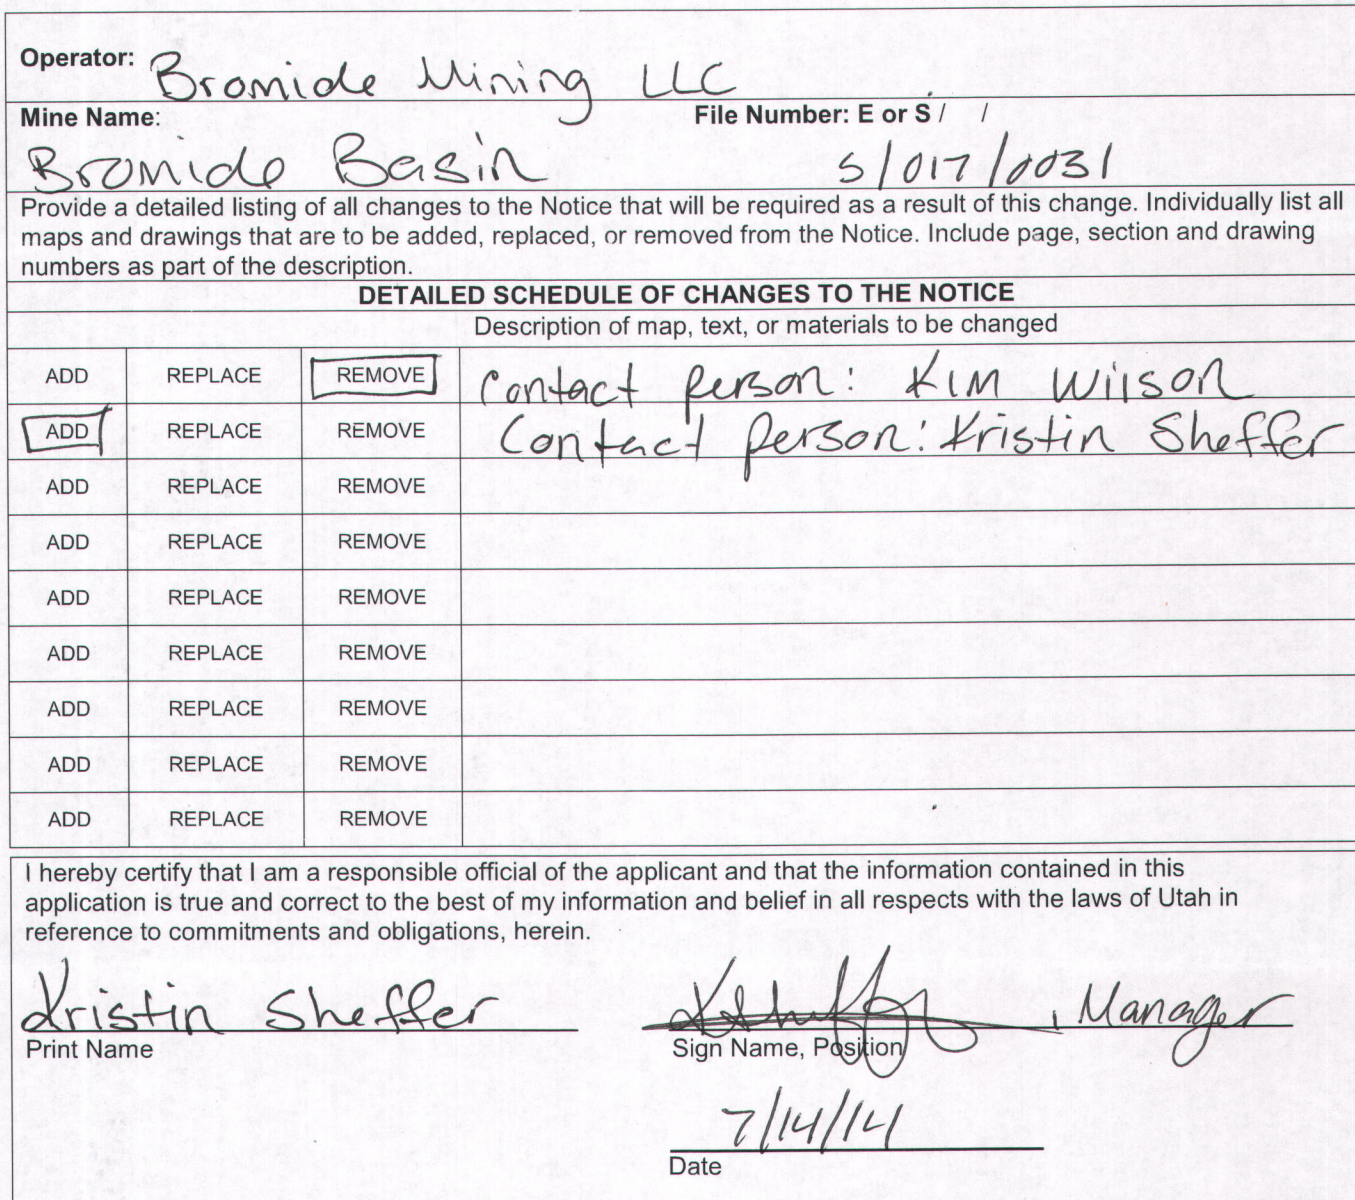 Operator: Bromide Mining LLC
Mine Name: File Number: E or S / /
Bromide Basin S/017/0031
Provide a detailed listing of all changes to the Notice that will be required as a result of this change. Individually list all
maps and drawings that are to be added, replaced, or removed from the Notice. Include page, section and drawing
numbers as part of the description.
DETAILED SCHEDULE OF CHANGES TO THE NOTICE
Description of map, text, or materials to be changed
ADD REPLACE REMOVE Contact person: Kim Wilson
ADD REPLACE REMOVE Contact person: Kristin Sheffer
ADD REPLACE REMOVE
ADD REPLACE REMOVE
ADD REPLACE REMOVE
ADD REPLACE REMOVE
ADD REPLACE REMOVE
ADD REPLACE REMOVE
ADD REPLACE REMOVE
I hereby certify that I am a responsible official of the applicant and that the information contained in this
application is true and correct to the best of my information and belief in all respects with the laws of Utah in
reference to commitments and obligations, herein.
Kristin Sheffer , Manager
Print Name Sign Name, Position
7/14/14
Date